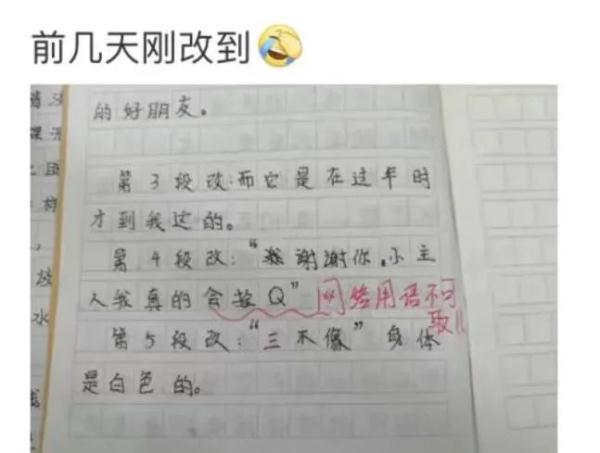 前几天刚改到
的好朋友。
第3段改:而它是在过年时
才到我这的。
第4段改:“谢谢你,小主
人我真的会 Q” 网络用语不可
取!!
第5段改:“三不像”身体
是白色的。
水